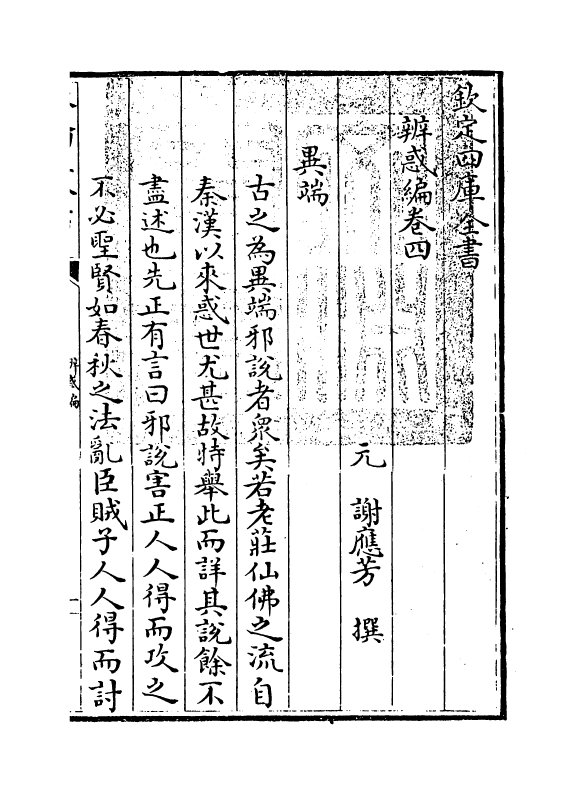 欽定四庫全書
辨惑編卷四
元　謝應芳　撰
異端
古之為異端邪說者衆矣若老莊仙佛之流自
秦漢以來惑世尤甚故特舉此而詳其說餘不
盡述也先正有言曰邪說害正人人得而攻之
不必聖賢如春秋之法亂臣賊子人人得而討
辨惑編
一